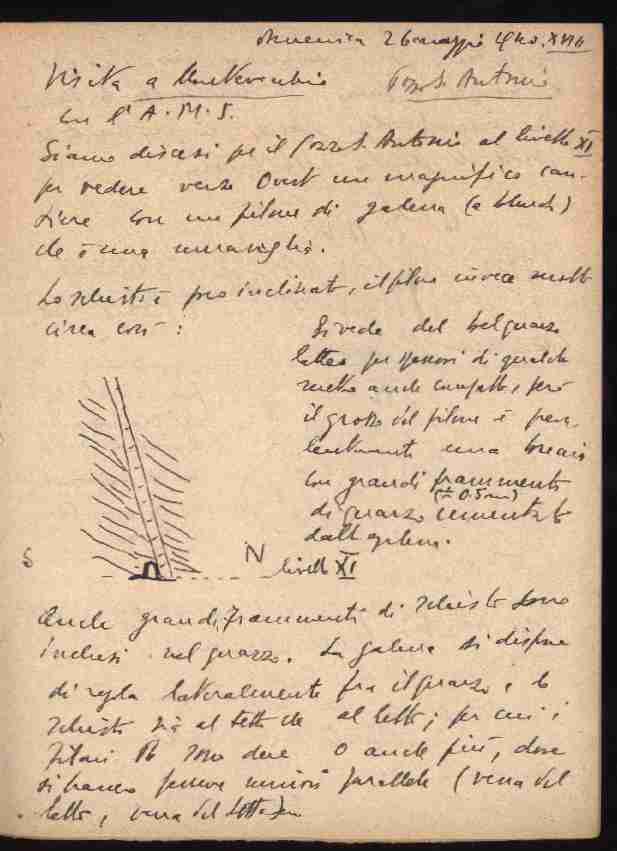 Domenica 26 maggio 1940. XVIII
Visita a Montevecchio Pozzo S. Antonio
con l'A.M.S.
Siamo discesi per il Pozzo S. Antonio al livello XI
per vedere verso Ovest un magnifico can-
tiere con un filone di galena (e blenda)
che è una meraviglia.
Lo schisto è poco inclinato, il filone invece molto
circa così:
Si vede del bel quarzo
latteo per spessori di qualche
metro anche compatto, però
il grosso del filone è preva-
lentemente una breccia
con grandi frammenti
(± 0.5 m)
di quarzo cementato
dalla galena.
S N livello XI
Anche grandi frammenti di schisto sono
inclusi nel quarzo. La galena si dispone
di regola lateralmente fra il quarzo e lo
schisto sia al tetto che al letto; per cui i
filoni Pb sono due o anche più, dove
si hanno vene minori parallele (vena del
letto, vena del tetto)